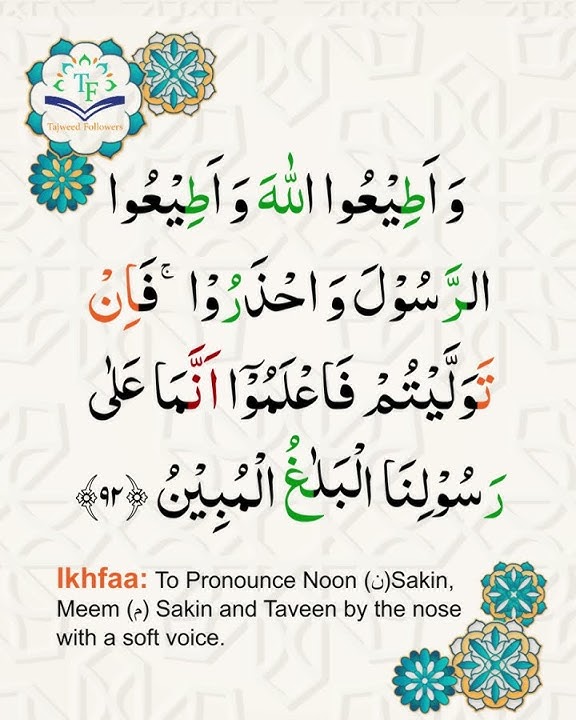 TF
Tajweed Followers
وَ اَطِيْعُوا اللّٰهَ وَ اَطِيْعُوا
الرَّسُوْلَ وَ احْذَرُوْا ۚ فَاِنْ
تَوَلَّيْتُمْ فَاعْلَمُوْۤا اَنَّمَا عَلٰى
رَسُوْلِنَا الْبَلٰغُ الْمُبِيْنُ ﴿۹۲﴾
Ikhfaa: To Pronounce Noon (ن)Sakin,
Meem (م) Sakin and Taveen by the nose
with a soft voice.